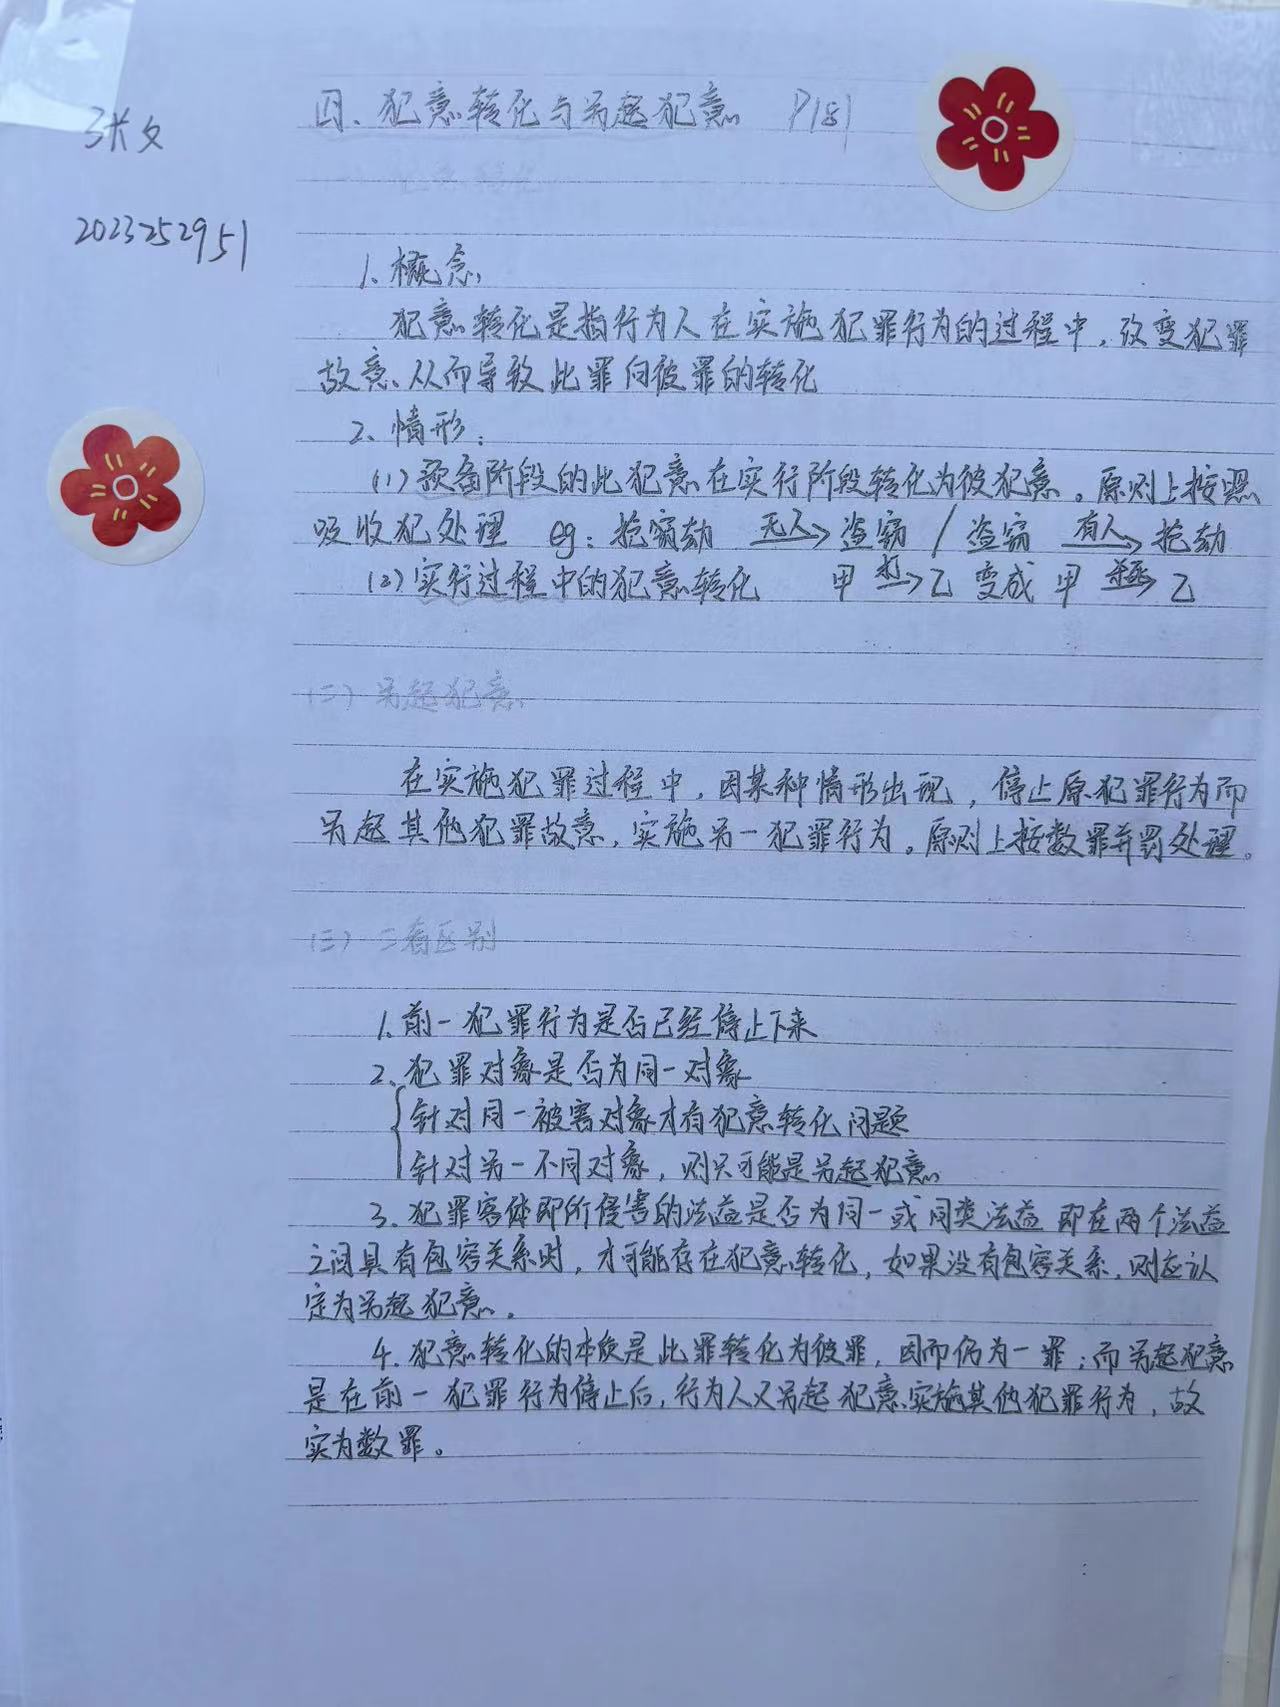 四、犯意转化与另起犯意 P181
张文
2023252951
1、概念
犯意转化是指行为人在实施犯罪行为的过程中，改变犯罪
故意、从而导致此罪向彼罪的转化
2、情形：
(1) 预备阶段的此犯意在实行阶段转化为彼犯意。原则上按照
吸收犯处理 eg：抢窃劫 无人→ 盗窃 / 盗窃 有人→ 抢劫
(2) 实行过程中的犯意转化 甲 打→ 乙 变成 甲 杀死→ 乙
(二) 另起犯意
在实施犯罪过程中，因某种情形出现，停止原犯罪行为而
另起其他犯罪故意，实施另一犯罪行为。原则上按数罪并罚处理。
(三) 二者区别
1、前一犯罪行为是否已经停止下来
2、犯罪对象是否为同一对象
针对同一被害对象才有犯意转化问题
针对另一不同对象，则只可能是另起犯意
3、犯罪客体即所侵害的法益是否为同一或同类法益 即在两个法益
之间具有包容关系时，才可能存在犯意转化，如果没有包容关系，则应认
定为另起犯意。
4、犯意转化的本质是此罪转化为彼罪，因而仍为一罪；而另起犯意
是在前一犯罪行为停止后，行为人又另起犯意实施其他犯罪行为，故
实为数罪。